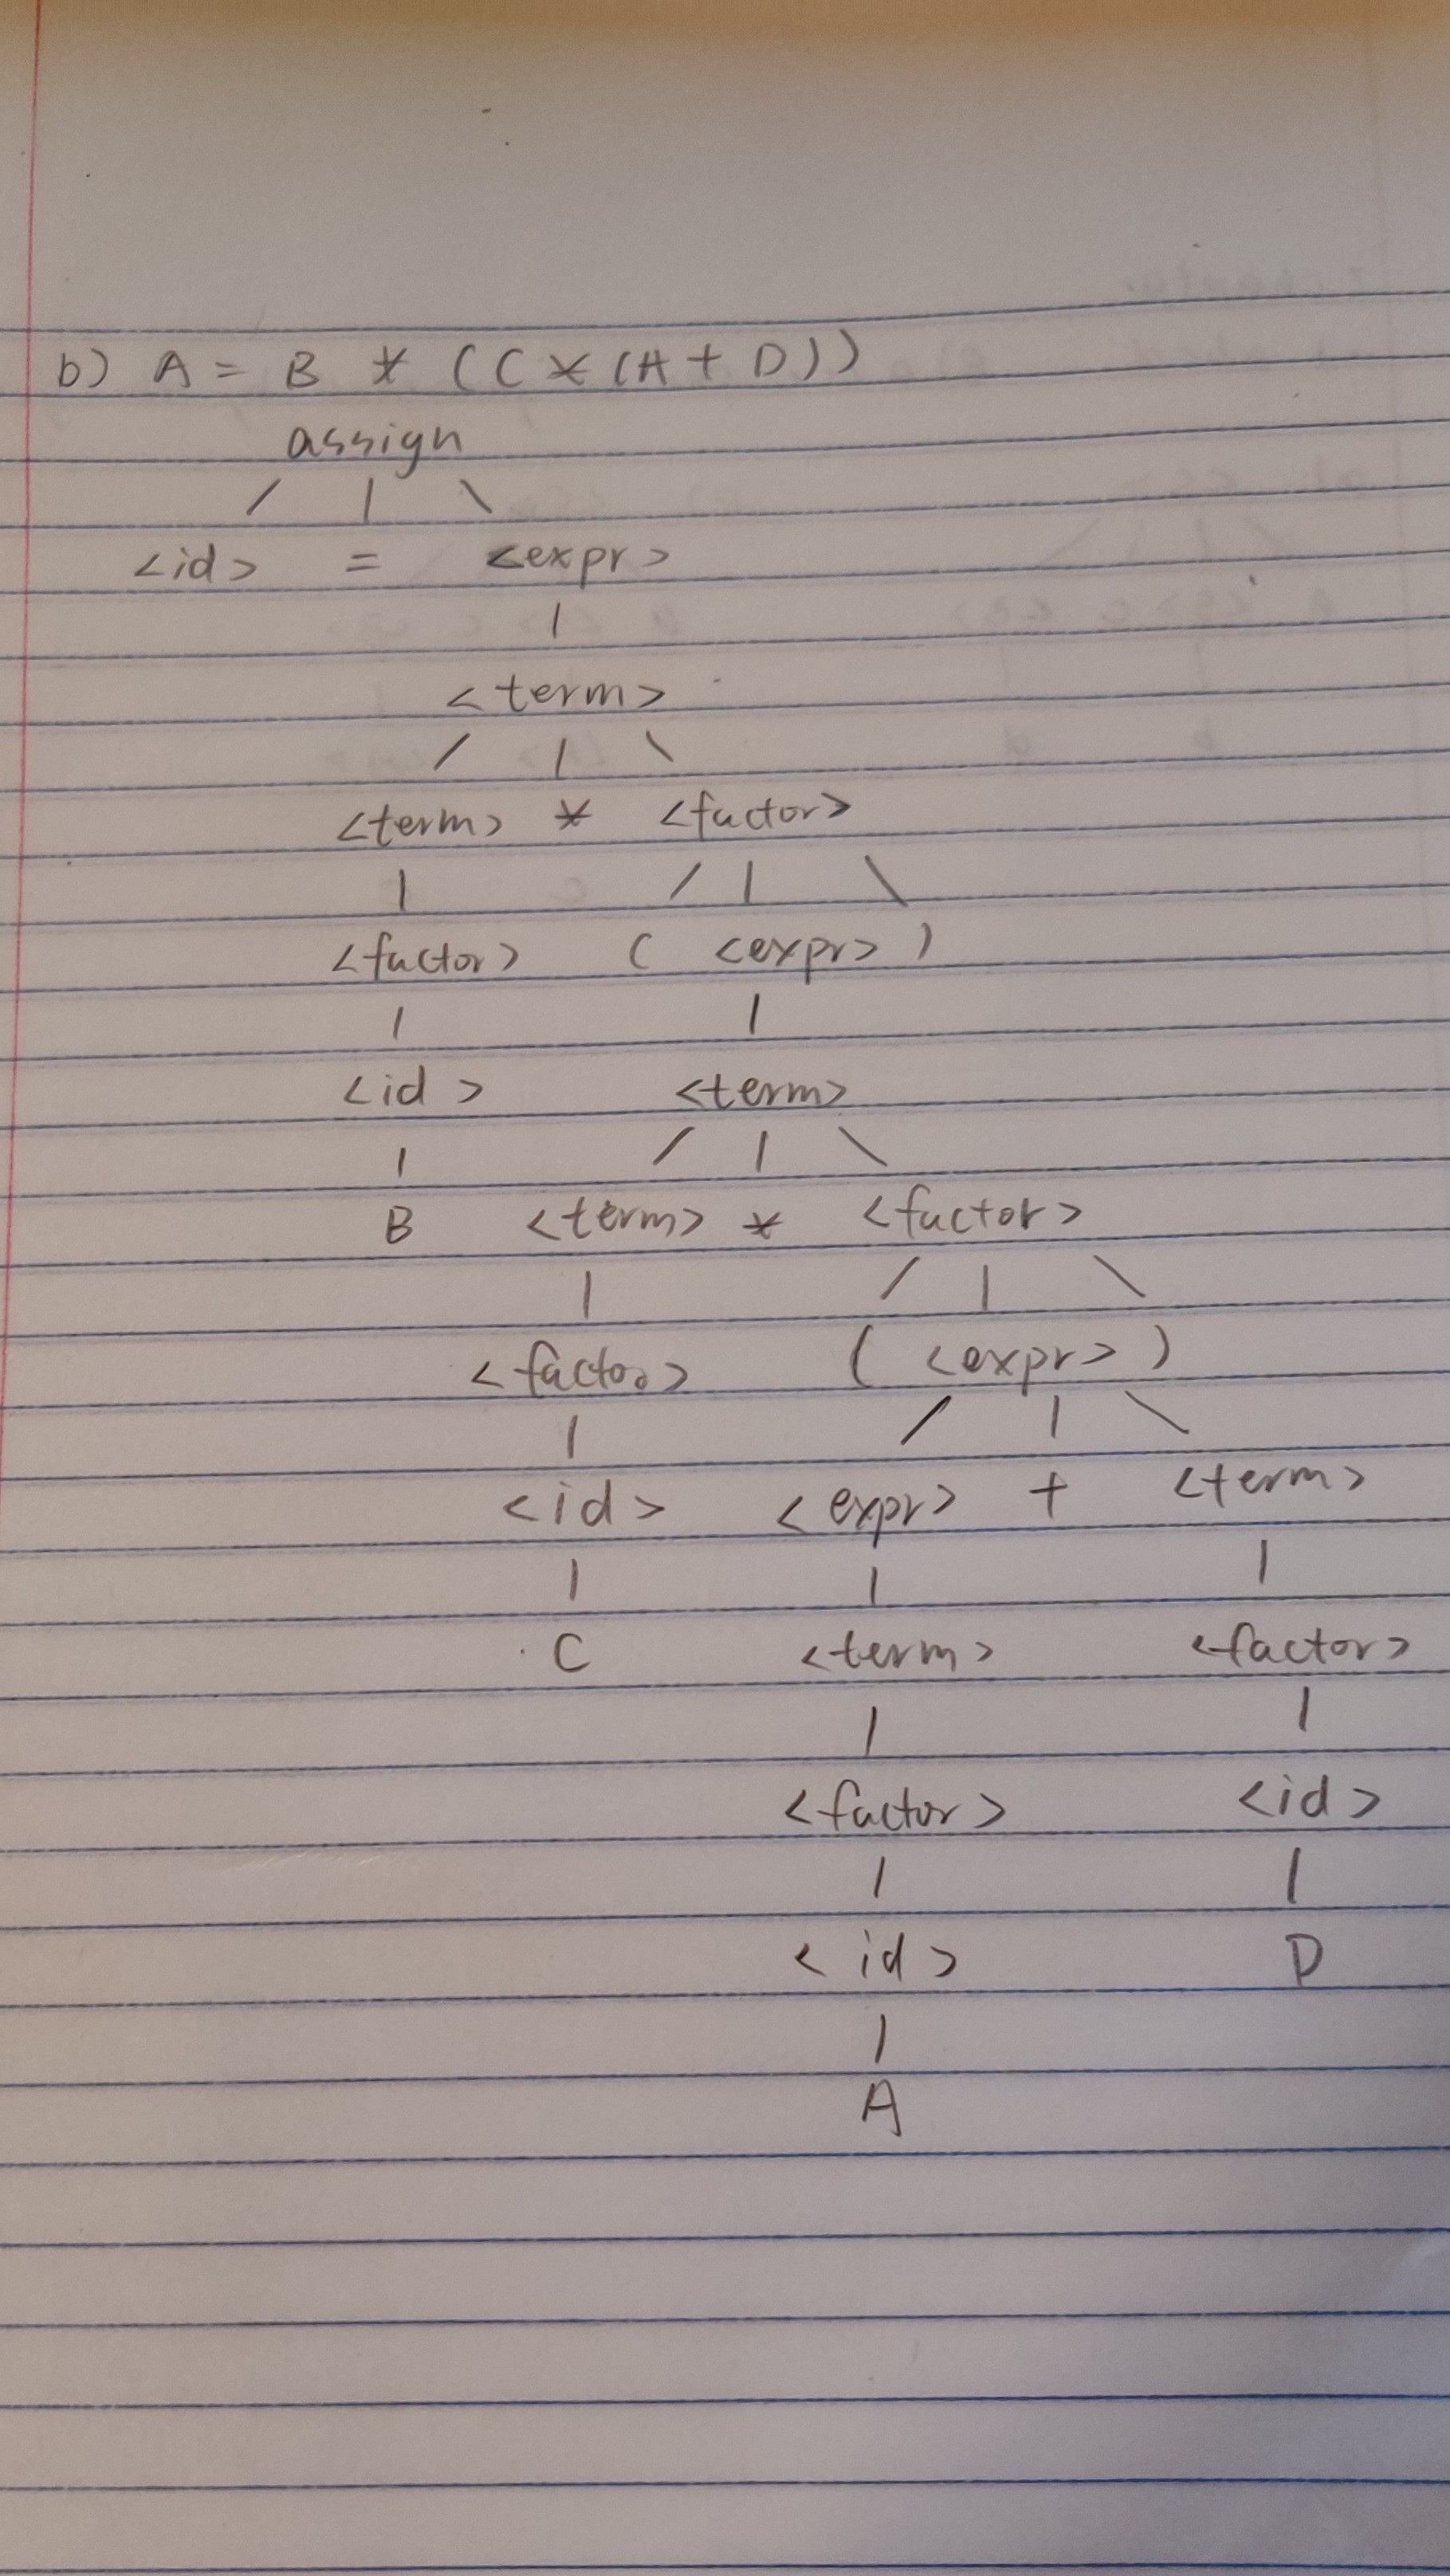 b) A = B * (C * (A + D))
assign
<id> = <expr>
<term>
<term> * <factor>
<factor> ( <expr> )
<id> <term>
B <term> * <factor>
<factor> ( <expr> )
<id> <expr> + <term>
C <term> <factor>
<factor> <id>
<id> D
A